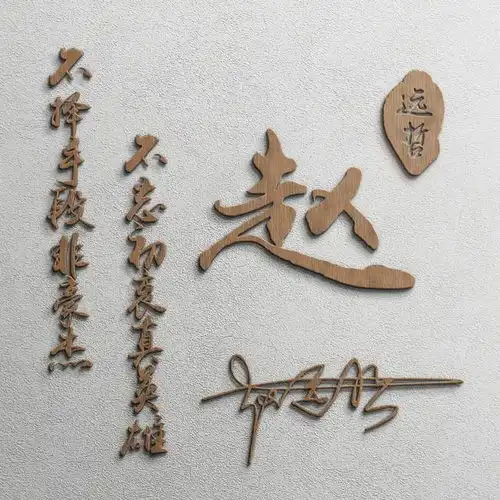 不择手段非豪杰
不忘初衷真英雄
赵
远哲